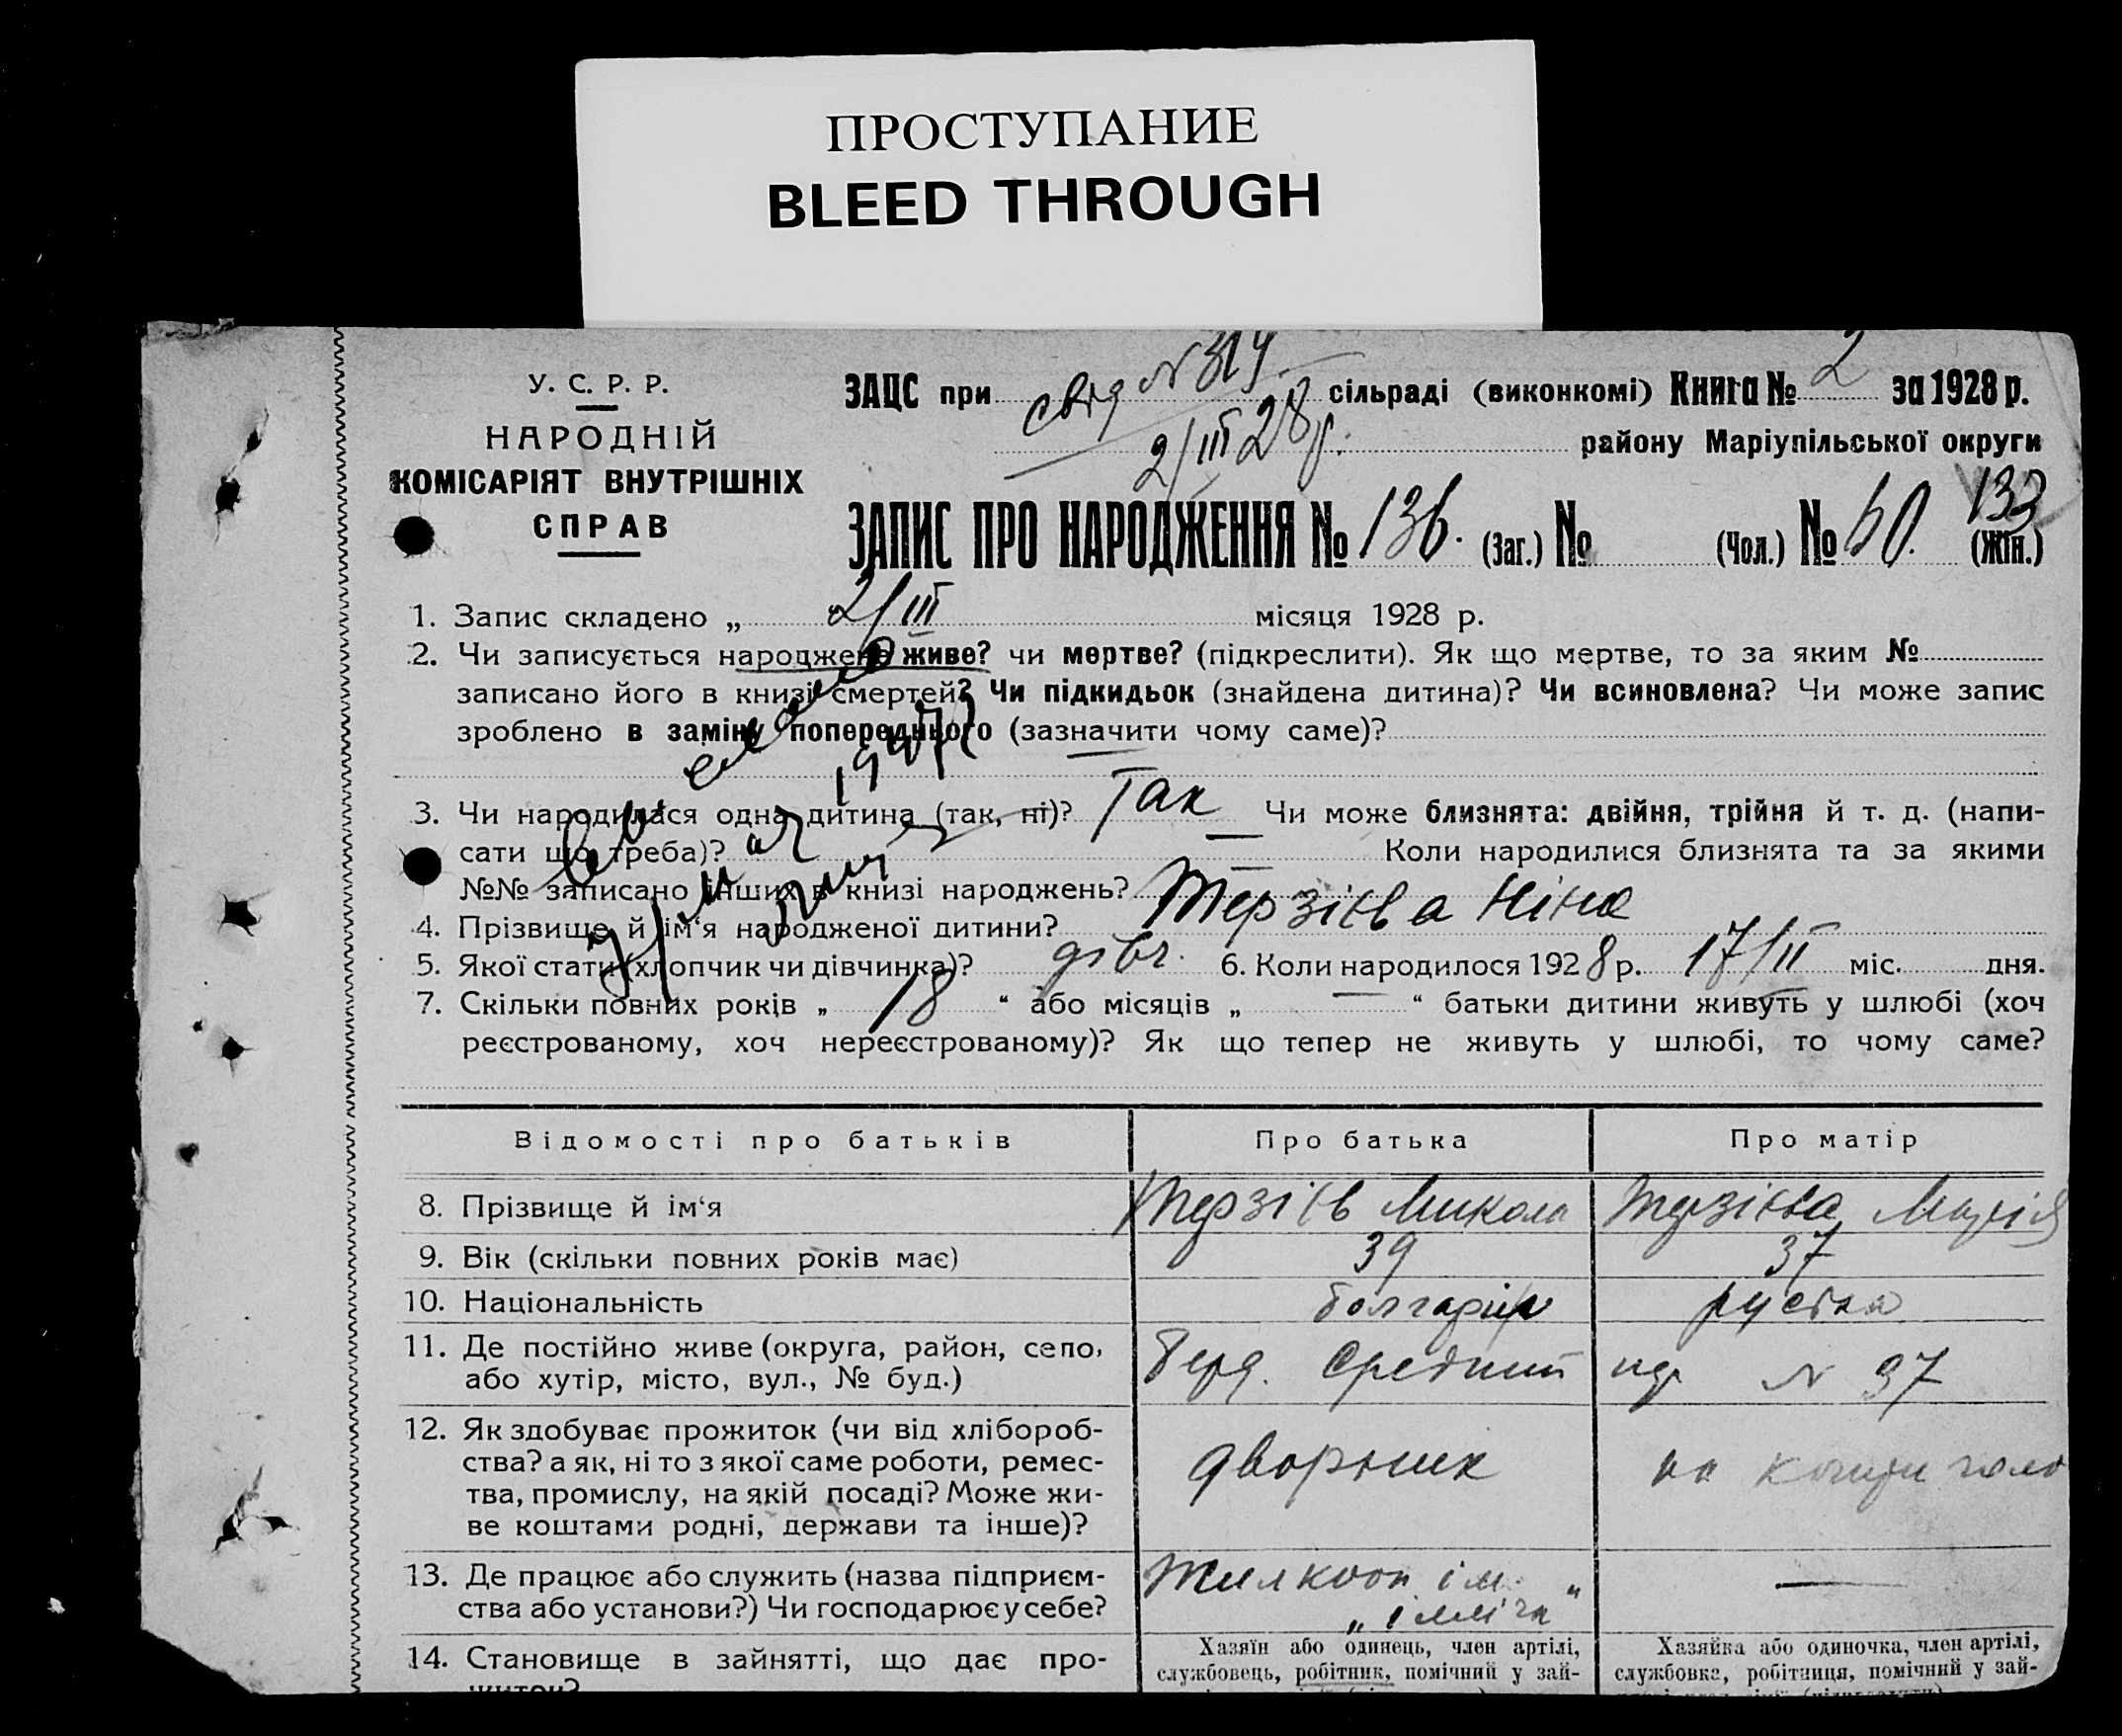 ПРОСТУПАНИЕ
BLEED THROUGH
У. С. Р. Р.
НАРОДНІЙ
КОМІСАРІЯТ ВНУТРІШНІХ
СПРАВ
свід N 319.
ЗАЦС при сільраді (виконкомі) Книга № 2 за 1928 р.
2/III 28р. району Маріупільської округи
133
ЗАПИС ПРО НАРОДЖЕННЯ № 136. (Заг.) № (Чол.) № 60. (Жін.)
1. Запис складено „ 2/III місяця 1928 р.
2. Чи записується народжене живе? чи мертве? (підкреслити). Як що мертве, то за яким №
записано його в книзі смертей? Чи підкидьок (знайдена дитина)? Чи всиновлена? Чи може запис
зроблено в заміну попереднього (зазначити чому саме)?
3. Чи народилася одна дитина (так, ні)? Так Чи може близнята: двійня, трійня й т. д. (напи-
сати що треба)? Коли народилися близнята та за якими
№№ записано інших в книзі народжень?
4. Прізвище й ім'я народженої дитини? Терзієва Ніна
5. Якої стати (хлопчик чи дівчинка)? дівч. 6. Коли народилося 1928 р. 17/II міс. дня.
7. Скільки повних років „ 18 “ або місяців „ — “ батьки дитини живуть у шлюбі (хоч
реєстрованому, хоч нереєстрованому)? Як що тепер не живуть у шлюбі, то чому саме?
Відомості про батьків Про батька Про матір
8. Прізвище й ім'я Терзієв Микола Терзієва Марія
9. Вік (скільки повних років має) 39 37
10. Національність болгарин руська
11. Де постійно живе (округа, район, село, Берд. Средний N 37
або хутір, місто, вул., № буд.)
12. Як здобуває прожиток (чи від хлібороб-
ства? а як, ні то з якої саме роботи, ремес- дворник на
тва, промислу, на якій посаді? Може жи-
ве коштами родні, держави та інше)?
13. Де працює або служить (назва підприєм- Жилкооп ім. —
ства або установи?) Чи господарює у себе? „Ілліча“
14. Становище в зайнятті, що дає про-
житок?
Хазяїн або одинець, член артілі,
службовець, робітник, помічний у зай-
Хазяйка або одиночка, член артілі,
службовка, робітниця, помічний у зай-